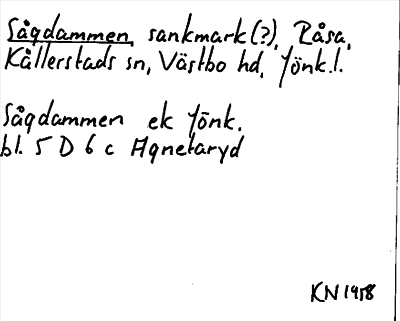 Sågdammen, sankmark(?), Råsa,
Kållerstads sn, Västbo hd, Jönk.l.
Sågdammen ek Jönk.
bl. 5 D 6 c Agnetaryd
KN 1958